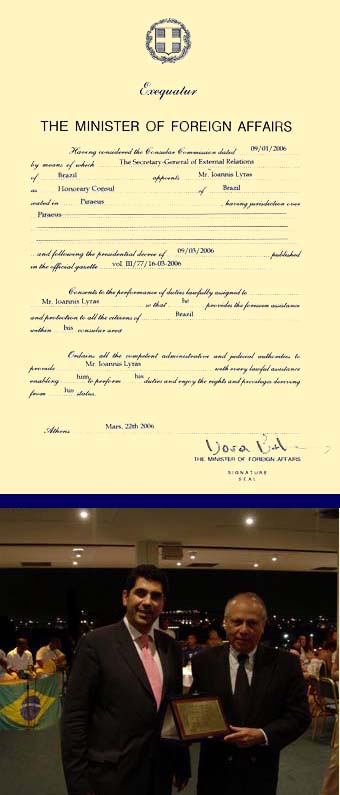 Exequatur
THE MINISTER OF FOREIGN AFFAIRS
Having considered the Consular Commission dated 09/01/2006
by means of which The Secretary-General of External Relations
of Brazil appoints Mr. Ioannis Lyras
as Honorary Consul of Brazil
seated in Piraeus , having jurisdiction over
Piraeus
and following the presidential decree of 09/03/2006 published
in the official gazette vol. III/77/16-03-2006
Consents to the performance of duties lawfully assigned to
Mr. Ioannis Lyras so that he provides the foreseen assistance
and protection to all the citizens of Brazil
within his consular area
Ordains all the competent administrative and judicial authorities to
provide Mr. Ioannis Lyras with every lawful assistance
enabling him to perform his duties and enjoy the rights and privileges deriving
from his status.
Athens Mars, 22th 2006
THE MINISTER OF FOREIGN AFFAIRS
SIGNATURE
SEAL